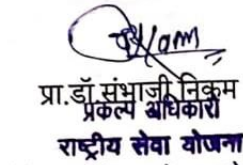 प्रा.डॉ.संभाजी निकम
प्रकल्प अधिकारी
राष्ट्रीय सेवा योजना